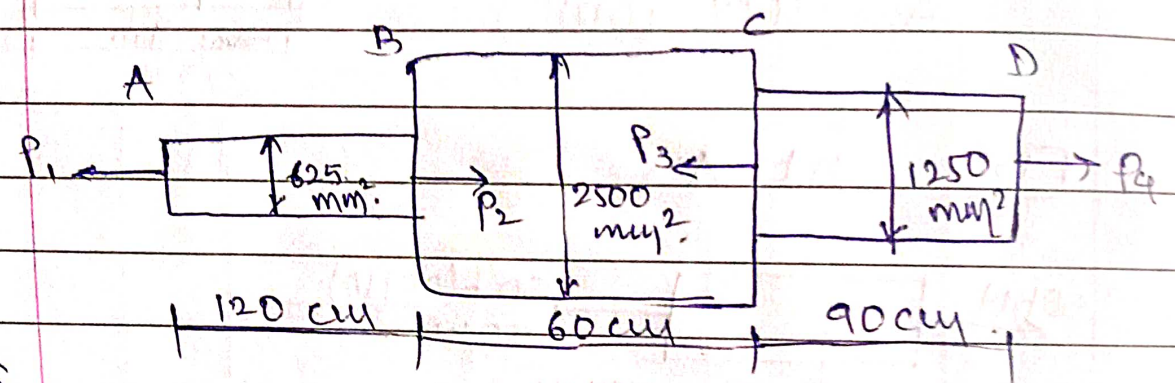 A B C D
P₁ 625 mm.² P₂ 2500 mm². P₃ 1250 mm² P₄
120 cm 60cm 90cm.